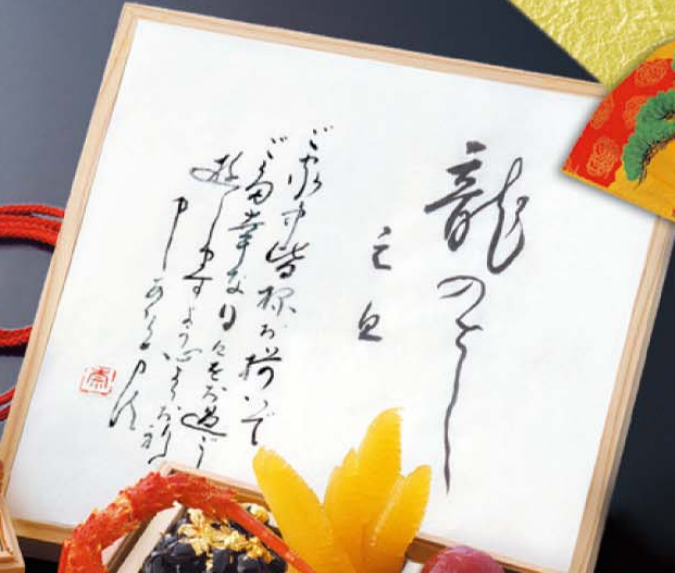 龍のとし
元旦
ご家中皆様お揃いで
ご多幸な日々をお過ごし
遊しますよう心よりお祈り
申しあげます